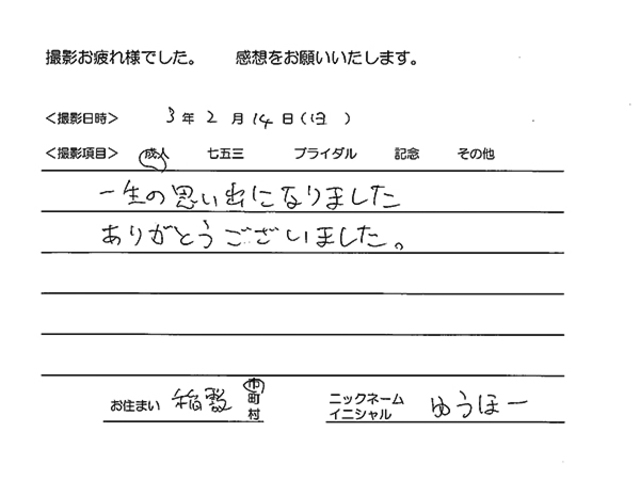 撮影お疲れ様でした。 感想をお願いいたします。
<撮影日時> 3年2月14日(日)
<撮影項目> 成人 七五三 ブライダル 記念 その他
一生の思い出になりました
ありがとうございました。
お住まい 稲敷 市町村 ニックネーム イニシャル ゆうほー